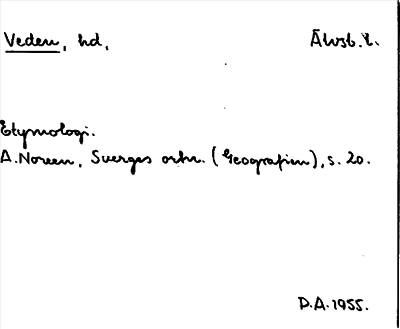 Veden, hd, Älvsb. l.
Etymologi.
A. Noreen, Sveriges ortn. (Geografien), s. 20.
D.A. 1955.